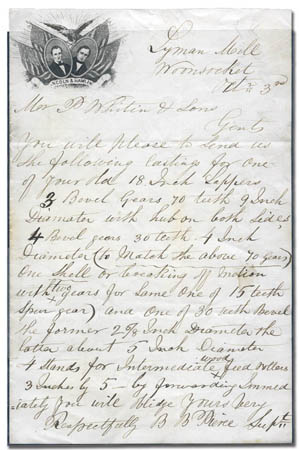 LINCOLN & HAMLIN
Lyman Mill
Woonsocket
3rd
P Whitin & Sons
Gents
You will please to send us
the following Castings for one
of your old 18 Inch Lappers
3 Bevel Gears 70 teeth 9 Inch
Diameter with hub on both sides
4 Bevel gears 30 teeth 4 Inch
Diameter (to Match the above 70 gears)
One Shell or Casting of Motion
with two gears for Same One of 15 teeth
Spur gear) and One of 30 teeth Bevel
the former 2 5/8 Inch Diameter the
latter about 5 Inch Diameter
4 Stands for Intermediate wood feed Rollers
3 Inches by 5 - by forwarding Immed
=iately You will oblige Yours Very
Respectfully B B Supt